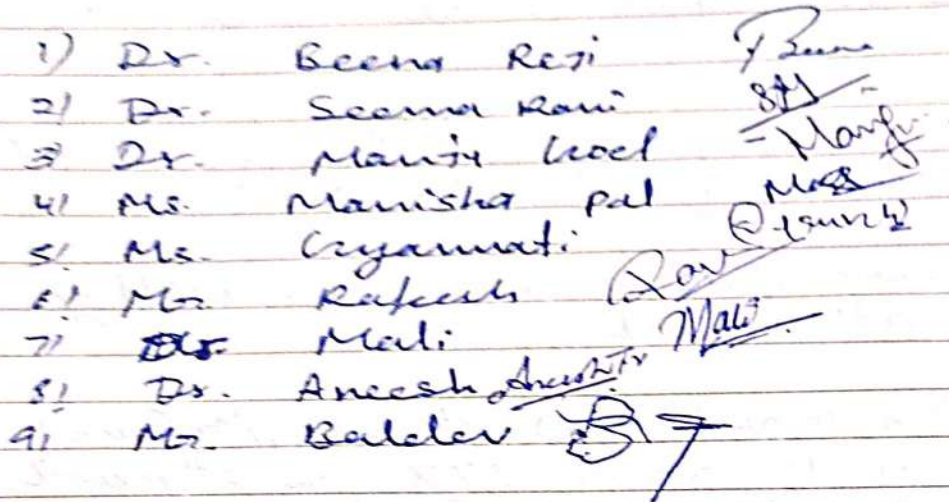 1) Dr. Beena Reji
2) Dr. Seema Rani
3) Dr. Manju Goel Manju
4) Ms. Manisha Pal
5) Ms. Gyanwati
6) Mr. Rakesh
7) Mali Mali
8) Dr. Aneesh
9) Mr. Baldev